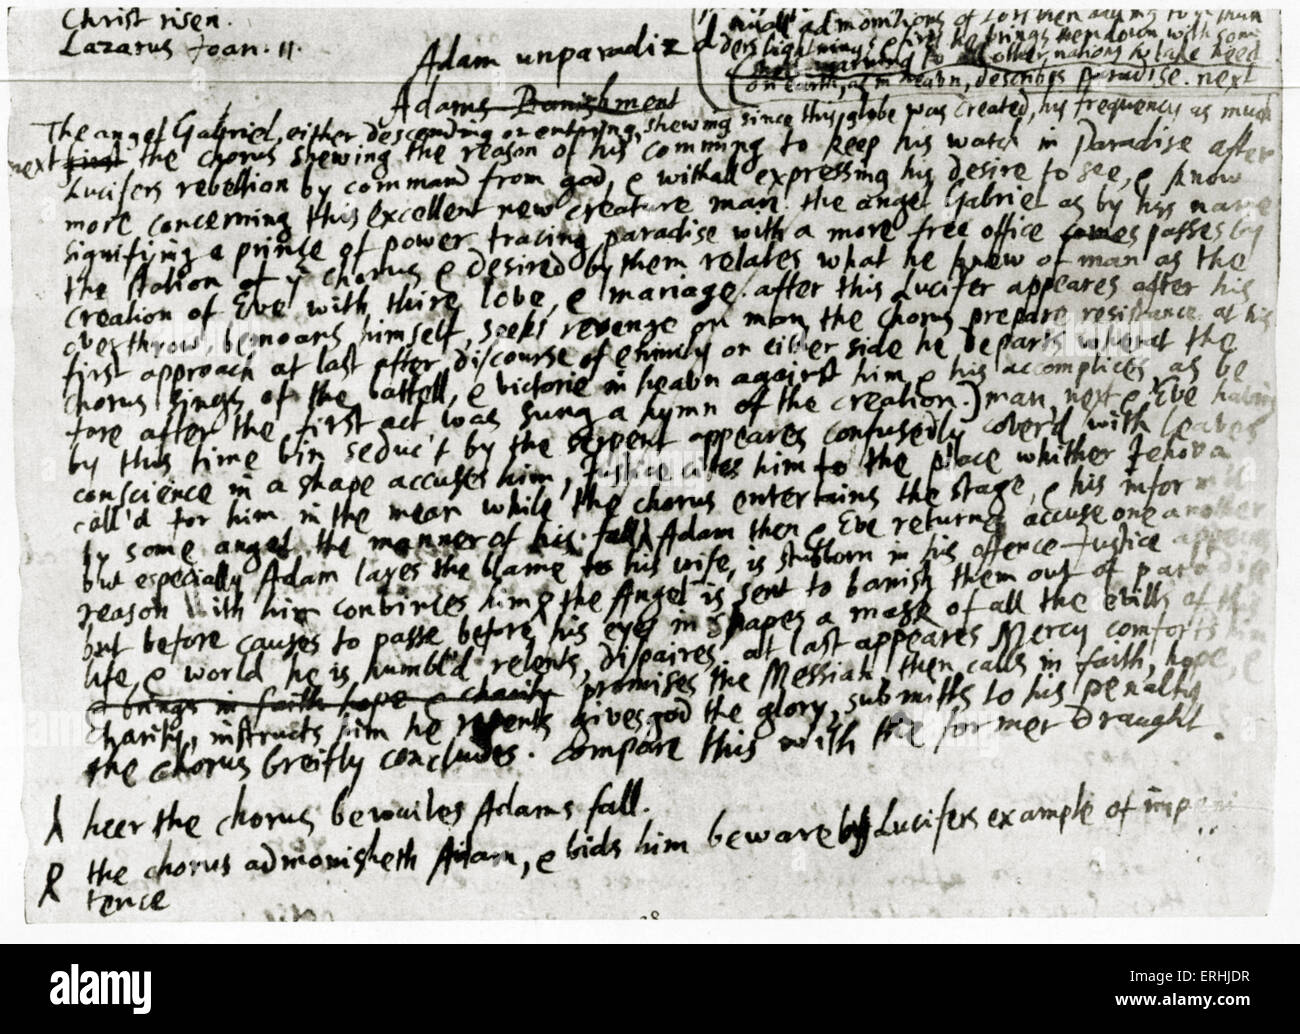 Christ risen.
Lazarus Joan. 11.
small admonitions of
ders lightnings & fire he brings them down with some
warning to all other nations to take heed
on earth, as in heavn, describes paradise. next
Adam unparadiz'd
Adams Banishment
The angel Gabriel, either descending or entring, shewing since this globe was created, his frequency as much
next first the chorus shewing the reason of his comming to keep his watch in Paradise after
Lucifers rebellion by command from god, & withall expressing his desire to see, & know
more concerning this excellent new creature man. the angel Gabriel as by his name
signifying a prince of power tracing paradise with a more free office comes passes by
the station of ye chorus & desired by them relates what he knew of man as the
creation of Eve with thire love, & mariage. after this Lucifer appeares after his
overthrow, bemoans himself, seeks revenge on man the chorus prepare resistance at his
first approach at last after discourse of enmity on either side he departs wherat the
chorus sings of the battell, & victorie in heavn against him & his accomplices, as be
fore after the first act was sung a hymn of the creation.) man next & Eve having
by this time bin seduc't by the serpent appeares confusedly cover'd with leaves
conscience in a shape accuses him, Justice cites him to the place whither Jehova
call'd for him in the mean while the chorus entertains the stage, & his inform'd
by some angel the manner of his fall Adam then & Eve returne accuse one another
but especially Adam layes the blame to his wife, is stubborn in his offence Justice appeares
reason with him convinces him & the Angel is sent to banish them out of paradise
but before causes to passe before his eyes in shapes a mask of all the evills of this
life & world he is humbl'd relents, dispaires. at last appeares Mercy comforts him
& brings in faith hope & charity promises the Messiah, then calls in faith, hope, &
charity, instructs him he repents gives god the glory, submitts to his penalty
the chorus breifly concludes. compare this with the former draught.
heer the chorus bewailes Adams fall.
the chorus admonisheth Adam, & bids him beware by Lucifers example of impeni
tence
alamy
Image ID: ERHJDR
www.alamy.com